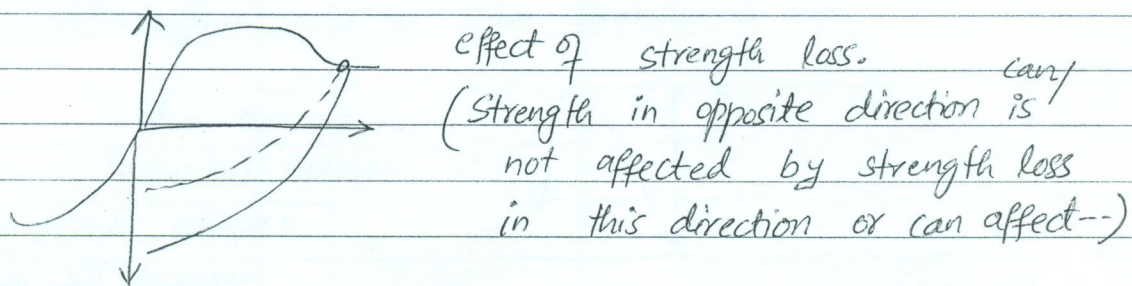 effect of strength loss.
can/
(Strength in opposite direction is
not affected by strength loss
in this direction or can affect--)